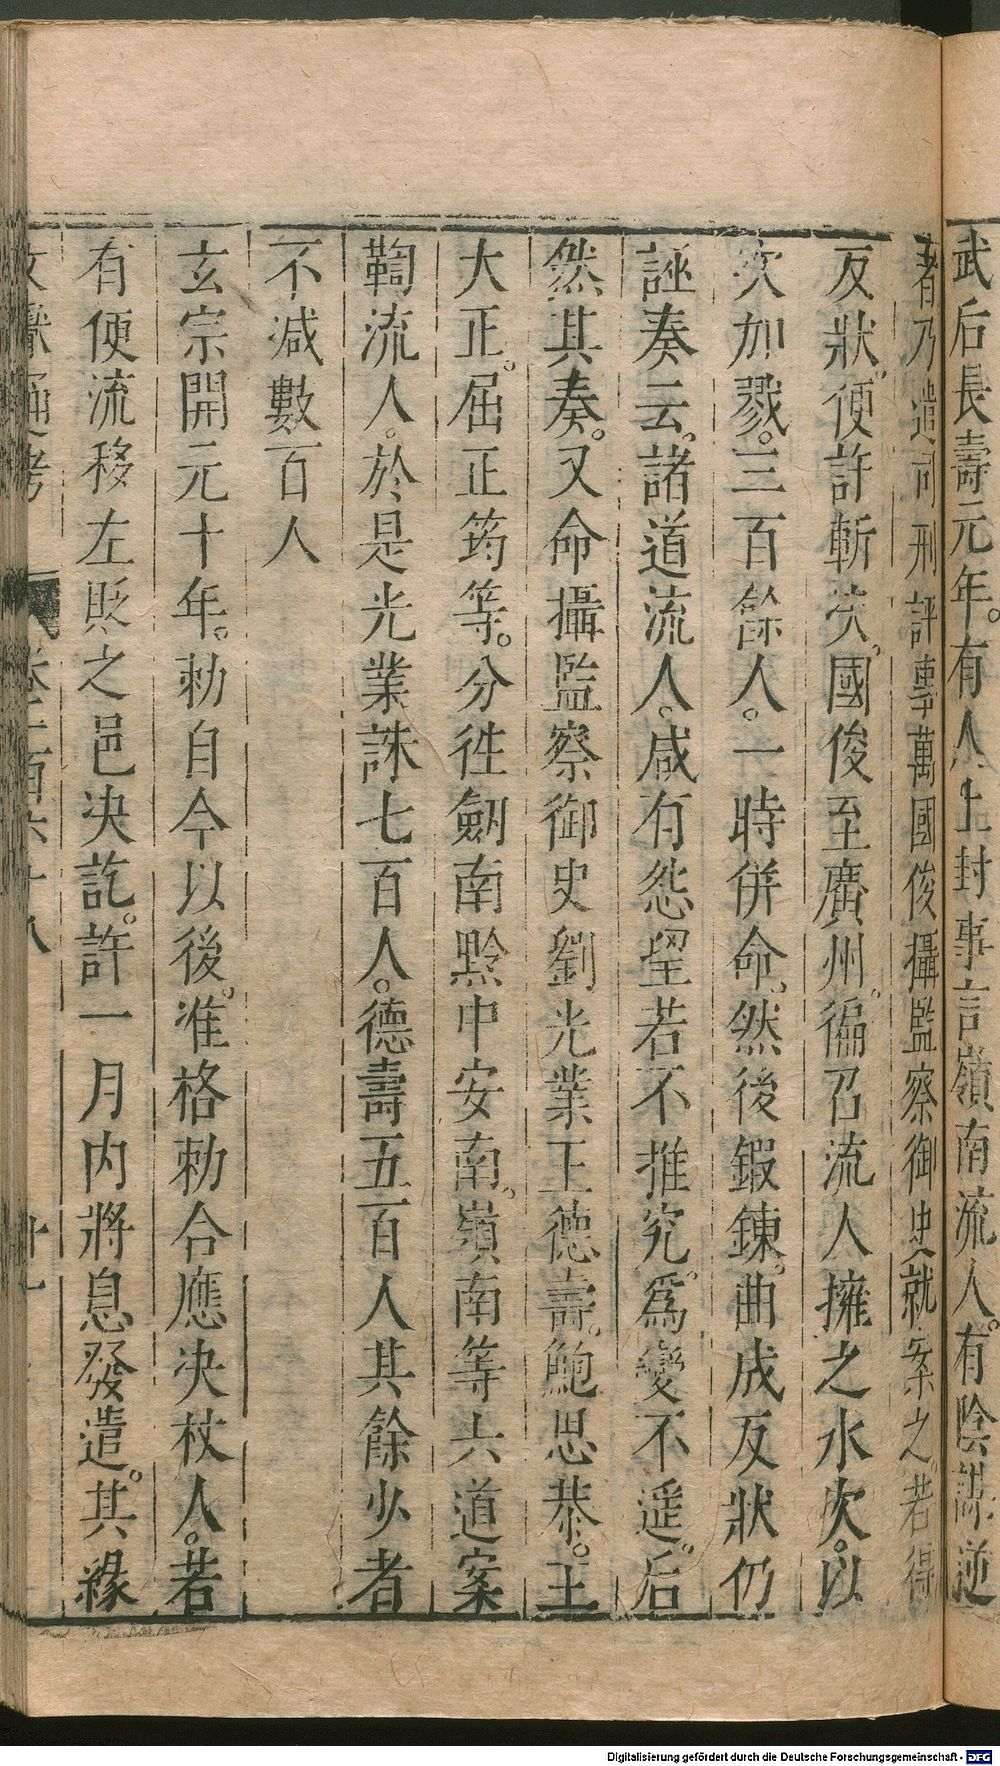 武后長壽元年。有人上封事言嶺南流人。有陰謀逆
者乃遣司刑評事萬國俊攝監察御史就案之。若得
反狀。便許斬决。國俊至廣州。徧召流人擁之水次。以
次加戮。三百餘人。一時併命。然後鍜鍊。曲成反狀仍
誣奏云。諸道流人。咸有怨望若不推究。爲變不遥。后
然其奏。又命攝監察御史劉光業王德壽。鮑思恭。王
大正。屈正筠等。分徃劔南黔中安南。嶺南等六道案
鞫流人。於是光業誅七百人。德壽五百人其餘少者
不減數百人
玄宗開元十年。勑自今以後。准格勑合應决杖人。若
有便流移左貶之邑决訖。許一月内將息發遣。其緣
文獻通考 卷一百六十八
Digitalisierung gefördert durch die Deutsche Forschungsgemeinschaft - DFG